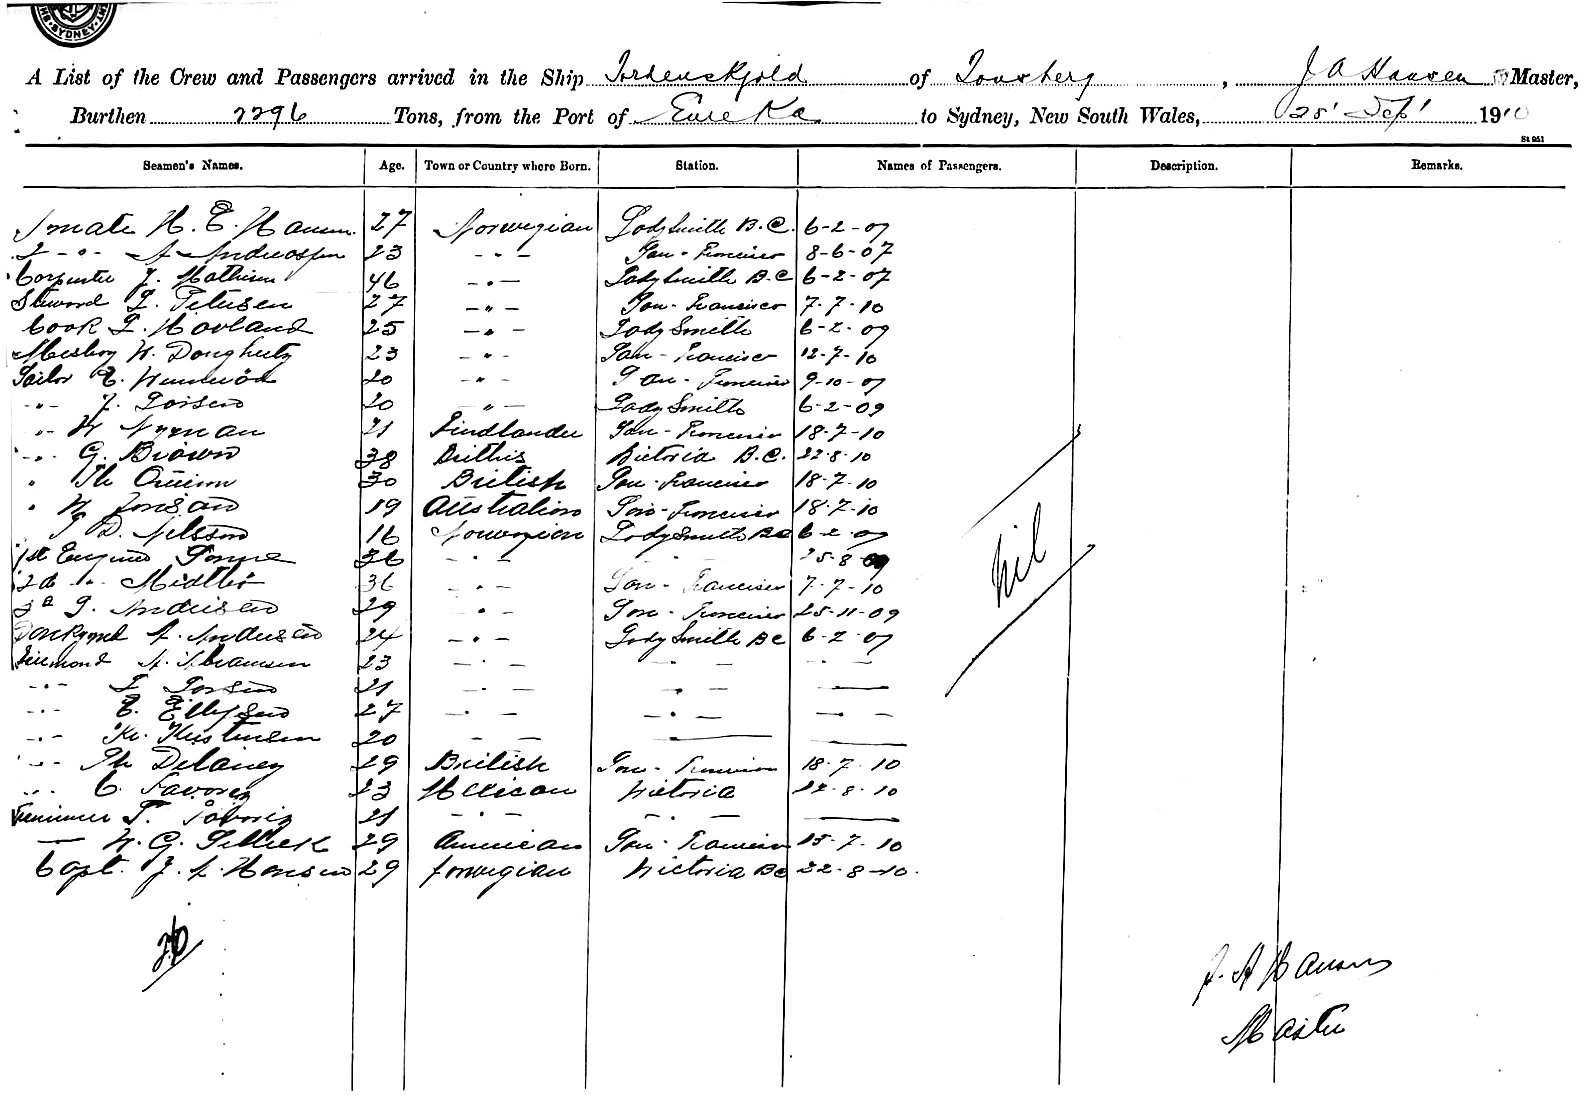 SYDNEY
A List of the Crew and Passengers arrived in the Ship Tordenskjold of Tonsberg, J A Hansen Master,
Burthen 2296 Tons, from the Port of Eureka to Sydney, New South Wales, 25' Sep' 1910
St 951
Seamen's Names. Age. Town or Country where Born. Station. Names of Passengers. Description. Remarks.
H. E. Hansen 27 Norwegian Lady Smith B.C. 6-2-09
2 - " - A Andreassen 23 - " - San-Francisco 8-6-07
Carpenter J. Mathisen 46 - " - Ladysmith B.C 6-2-07
Steward Petersen 27 - " - San-Francisco 7-7-10
Cook Hovland 25 - " - Lady Smith 6-2-09
Messboy W. Dougherty 23 - " - San-Francisco 12-7-10
Sailor 20 - " - San-Francisco 9-10-09
- " - J. Larsen 20 - " - Lady Smith 6-2-09
- " - Nyman 21 Findlander San-Francisco 18-7-10
- " - G. Brown 38 Brithis Victoria B.C. 22-8-10
" Th 30 British San-Francisco 18-7-10
" 19 Australian San-Francisco 18-7-10
D. Nilsson 16 Norwegian Lady Smith BC 6-2-09
1st 36 - " - 25-8-09
2d " 36 - " - San-Francisco 7-7-10
3d Andersen 29 - " - San-Francisco 25-11-09
A. Andersen 24 - " - Lady Smith BC 6-2-09
A. Abramsen 23 - " - - " - - " -
- " - Larsen 21 - " - - " -
- " - E. Ellefsen 27 - " - - " - - " -
- " - Kr. Kristensen 20 - " -
- " - Th Delaney 29 British San-Francisco 18-7-10
- " - C. Favorez 23 Mexican Victoria 22-8-10
T. Favorez 21 - " - - " -
W. G. 29 American San-Francisco 15-7-10
Capt. J. A. Hansen 29 Norwegian Victoria BC 22-8-10.
nil
26
J. A Hansen
Master